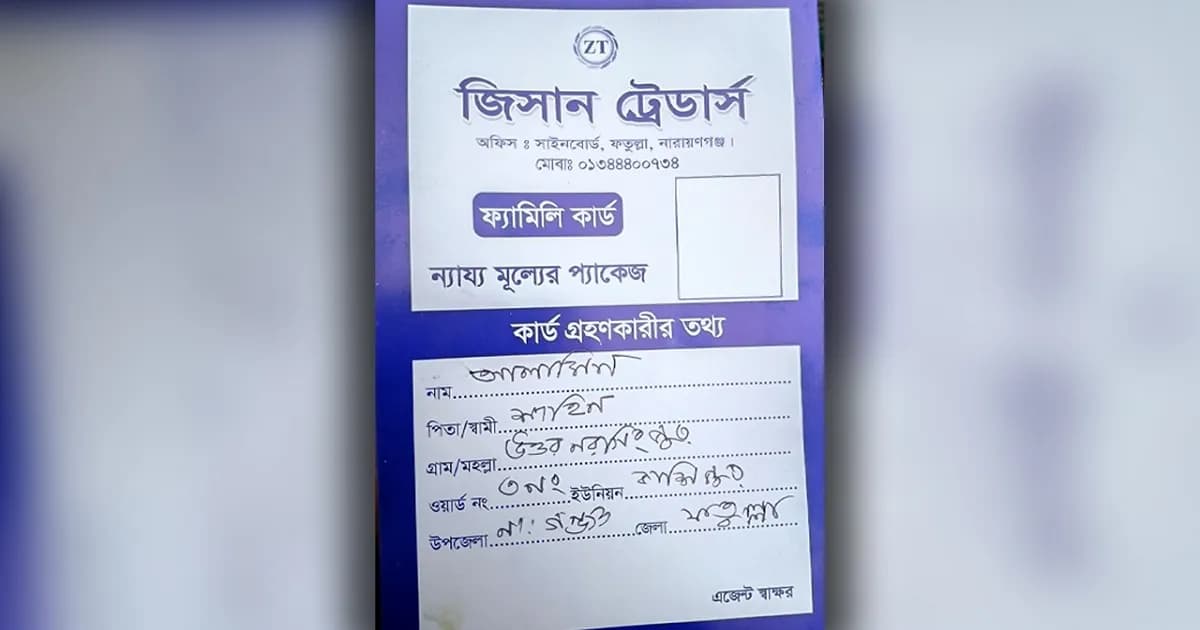 ZT
জিসান ট্রেডার্স
অফিস ঃ সাইনবোর্ড, ফতুল্লা, নারায়ণগঞ্জ।
মোবাঃ ০১৩৪৪৪০০৭৩৪
ফ্যামিলি কার্ড
ন্যায্য মূল্যের প্যাকেজ
কার্ড গ্রহণকারীর তথ্য
নাম আলামিন
পিতা/স্বামী শাহিন
গ্রাম/মহল্লা উত্তর নরসিংপুর
ওয়ার্ড নং ৩ নং ইউনিয়ন কাশিপুর
উপজেলা না: গঞ্জ জেলা ফতুল্লা
এজেন্ট স্বাক্ষর